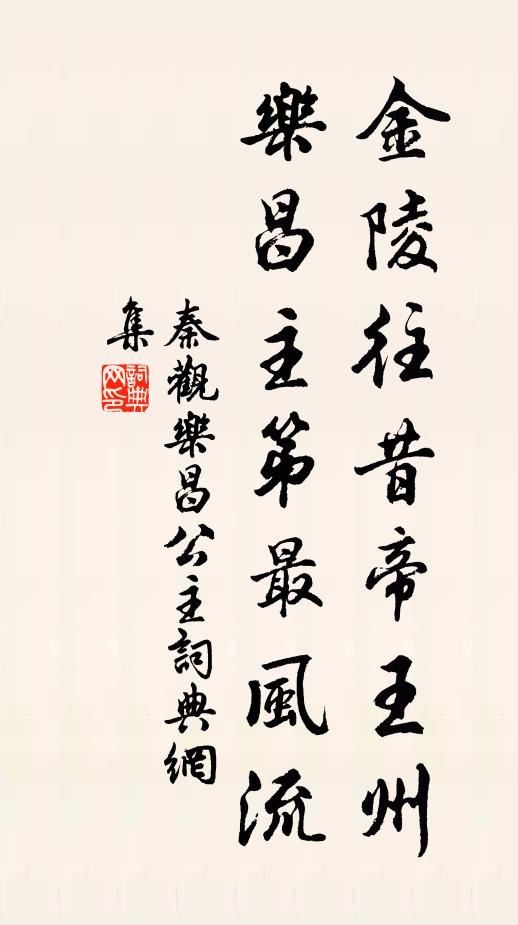 金陵往昔帝王州
樂昌主第最風流
秦觀樂昌公主詞典網
集
詞典
网印